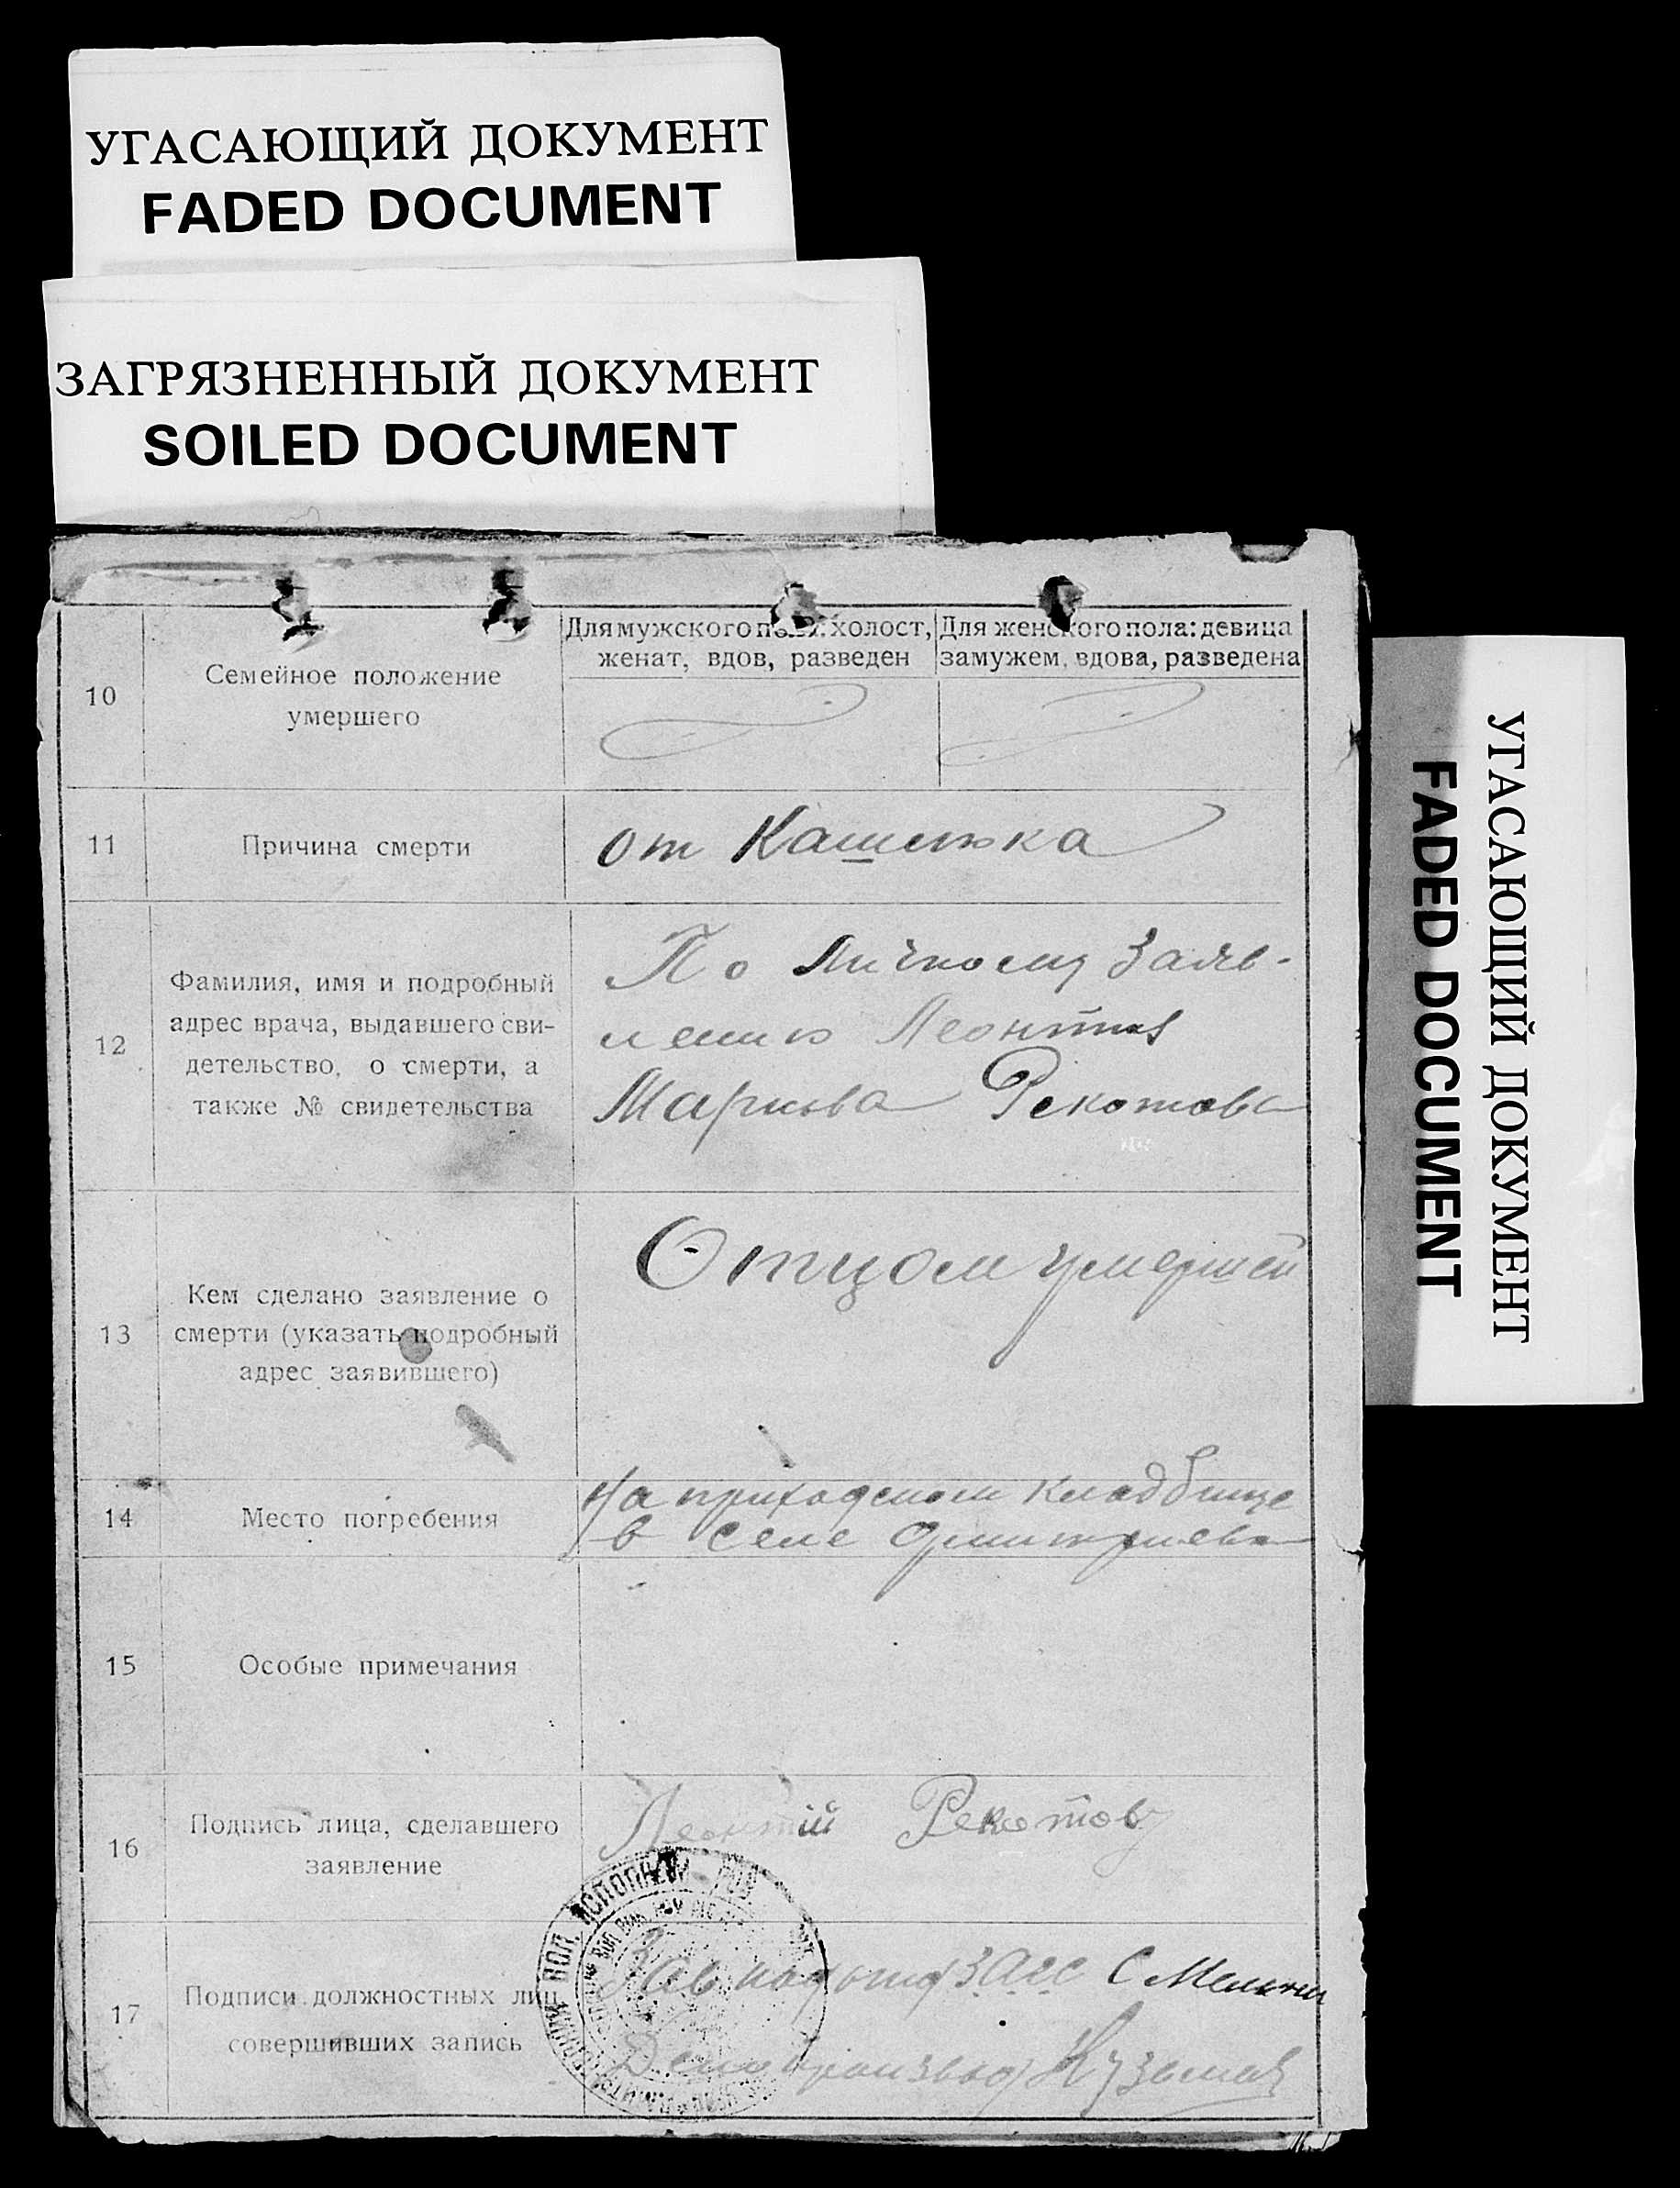 УГАСАЮЩИЙ ДОКУМЕНТ
FADED DOCUMENT
ЗАГРЯЗНЕННЫЙ ДОКУМЕНТ
SOILED DOCUMENT
УГАСАЮЩИЙ ДОКУМЕНТ
FADED DOCUMENT
10
Семейное положение
умершего
Для мужского пола: холост,
женат, вдов, разведен
Для женского пола: девица
замужем, вдова, разведена
11
Причина смерти
от Кашелька
12
Фамилия, имя и подробный
адрес врача, выдавшего сви-
детельство, о смерти, а
также № свидетельства
По Личному Заяв-
лению Леонтия
Маркова Рекотова
13
Кем сделано заявление о
смерти (указать подробный
адрес заявившего)
Отцом умершей
14
Место погребения
На приходском кладбище
в селе Дмитриева
15
Особые примечания
16
Подпись лица, сделавшего
заявление
Леонтий Рекотов
17
Подписи должностных лиц
совершивших запись
Зав подотд ЗАГС
Делопроизвод